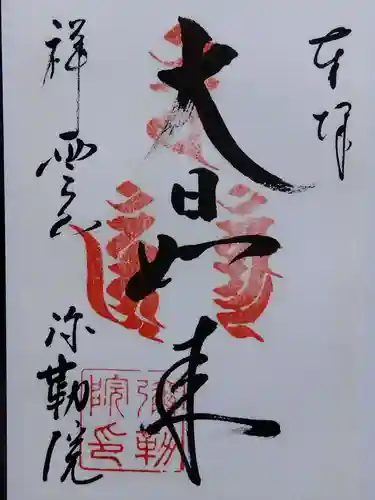 奉拝
大日如来
祥雲山
弥勒院
弥勒
院印